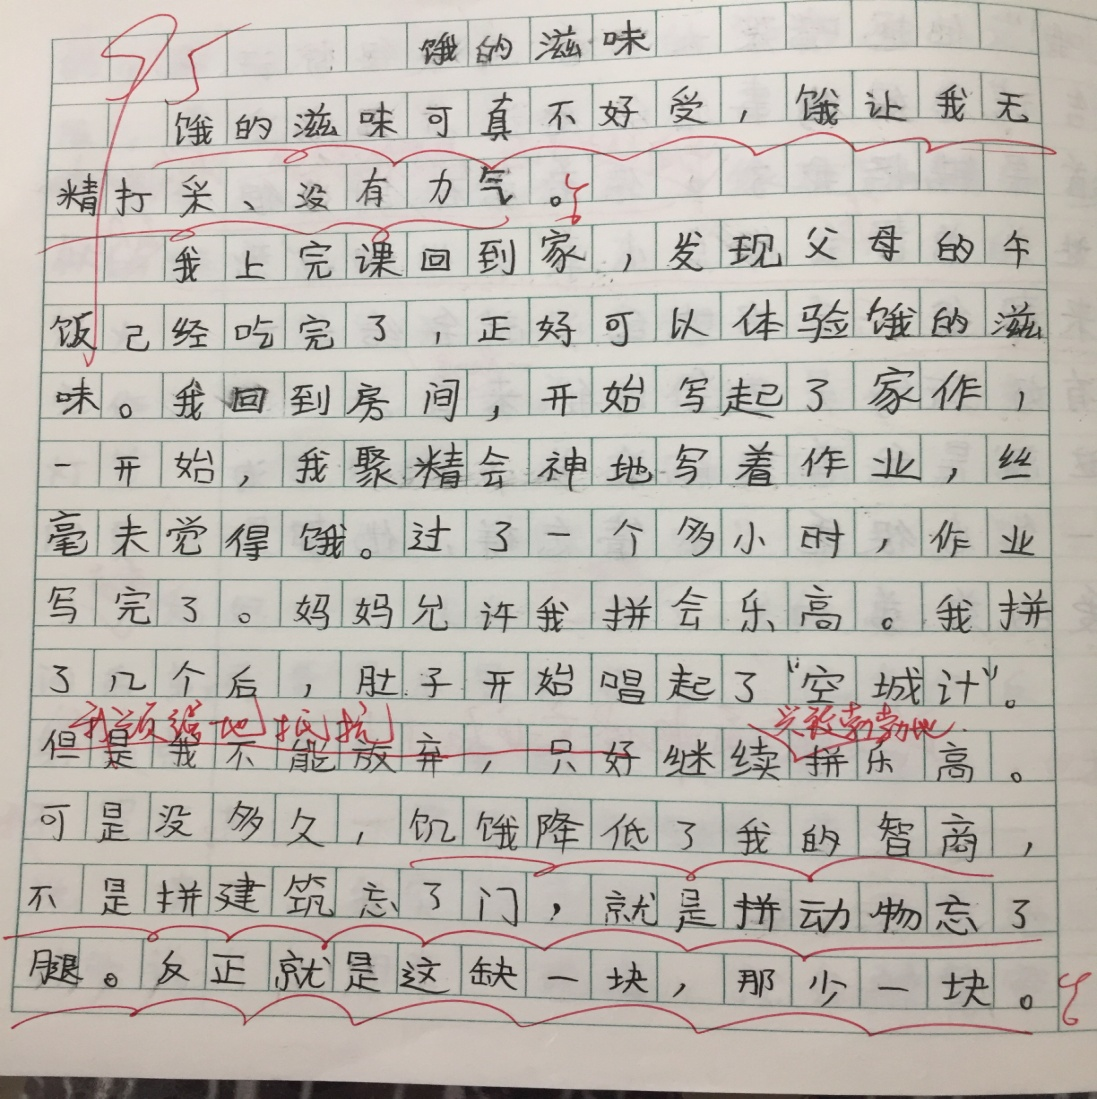 95
饿的滋味
饿的滋味可真不好受，饿让我无
精打采、没有力气。
我上完课回到家，发现父母的午
饭己经吃完了，正好可以体验饿的滋
味。我回到房间，开始写起了家作，
一开始，我聚精会神地写着作业，丝
毫未觉得饿。过了一个多小时，作业
写完了。妈妈允许我拼会乐高。我拼
了几个后，肚子开始唱起了“空城计”。
我顽强地抵抗 兴致勃勃地
但是我不能放弃，只好继续拼乐高。
可是没多久，饥饿降低了我的智商，
不是拼建筑忘了门，就是拼动物忘了
腿。反正就是这缺一块，那少一块。